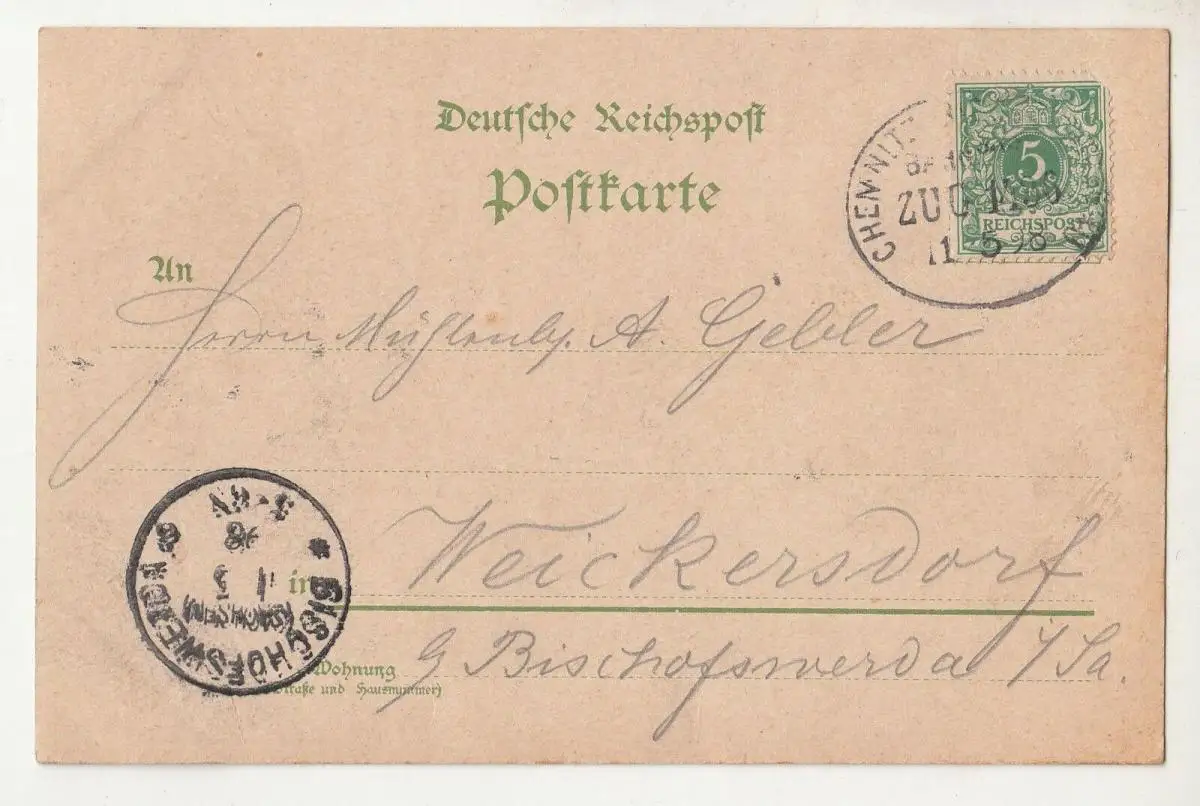 Deutsche Reichspost
Postkarte
5
REICHSPOST
CHEMNITZ
ZUG
11 5 98
An
Herrn Mühlenb. A. Gebler
in Weickersdorf
Wohnung
(Straße und Hausnummer)
b Bischofswerda i/Sa.
BISCHOFSWERDA
(SACHSEN)
98